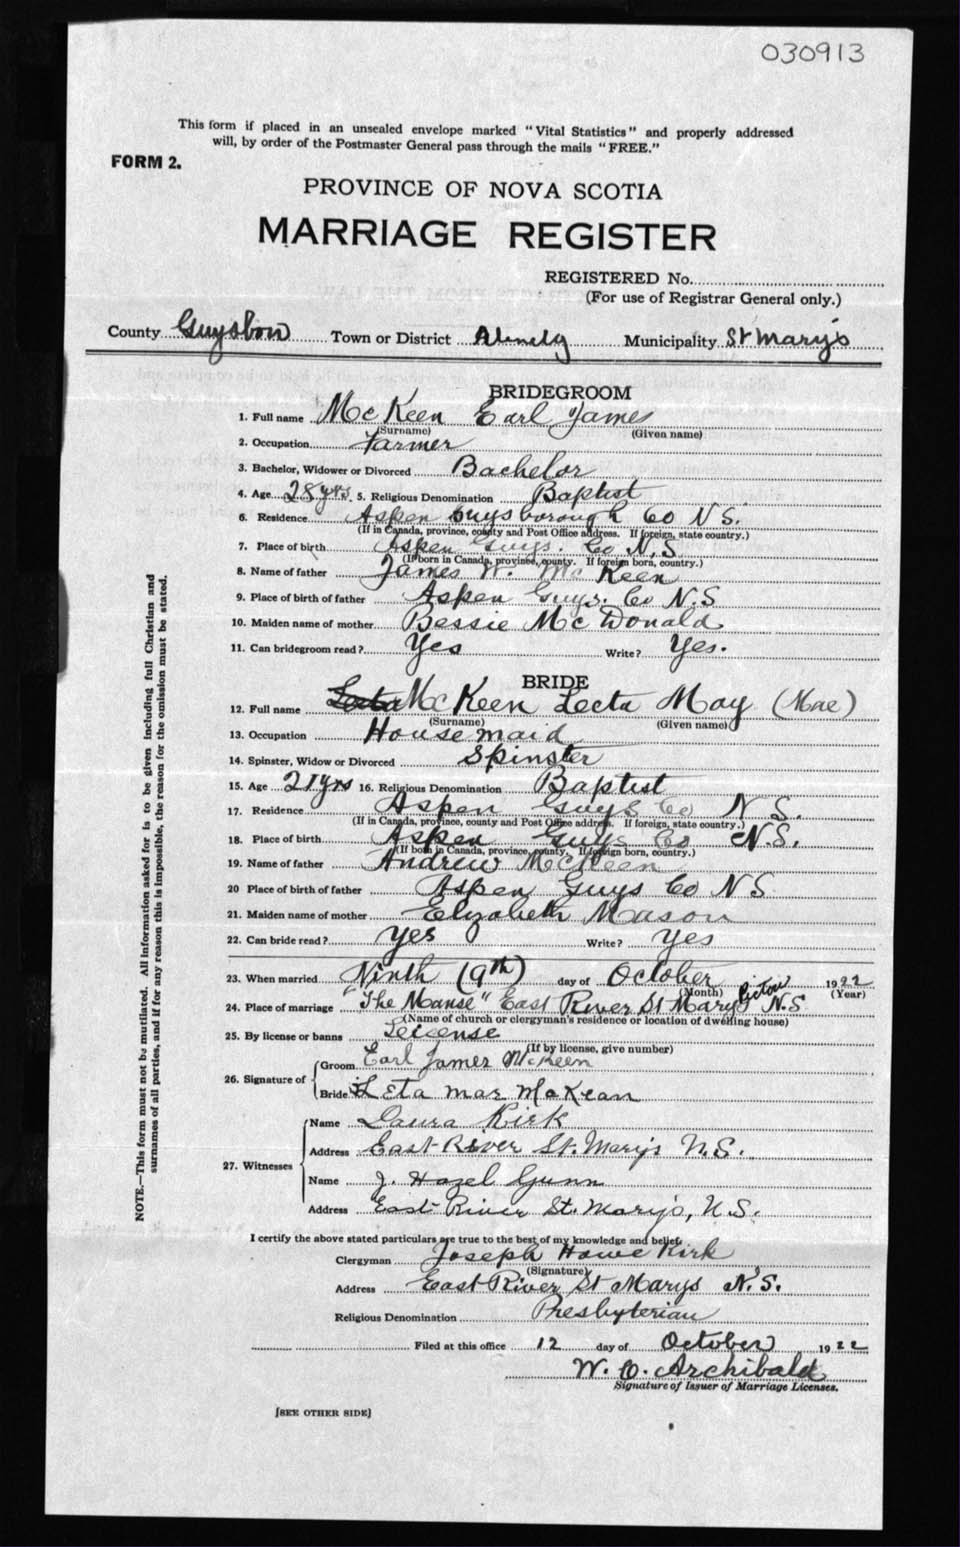 030913
This form if placed in an unsealed envelope marked "Vital Statistics" and properly addressed
will, by order of the Postmaster General pass through the mails "FREE."
FORM 2.
PROVINCE OF NOVA SCOTIA
MARRIAGE REGISTER
REGISTERED No.
(For use of Registrar General only.)
County Guysboro Town or District Municipality St Mary's
BRIDEGROOM
1. Full name McKeen Earl James
(Surname) (Given name)
2. Occupation Farmer
3. Bachelor, Widower or Divorced Bachelor
4. Age 28 yrs 5. Religious Denomination Baptist
6. Residence Aspen Guysborough Co N.S.
(If in Canada, province, county and Post Office address. If foreign, state country.)
7. Place of birth Aspen Guys. Co N.S
(If born in Canada, province, county. If foreign born, country.)
8. Name of father James W. McKeen
9. Place of birth of father Aspen Guys. Co N.S
10. Maiden name of mother Bessie McDonald
11. Can bridegroom read? Yes Write? Yes.
BRIDE
12. Full name Leeta McKeen Leeta May (Mae)
(Surname) (Given name)
13. Occupation Housemaid
14. Spinster, Widow or Divorced Spinster
15. Age 21 yrs 16. Religious Denomination Baptist
17. Residence Aspen Guys Co N S.
(If in Canada, province, county and Post Office address. If foreign, state country.)
18. Place of birth Aspen Guys Co N.S.
(If born in Canada, province, county. If foreign born, country.)
19. Name of father Andrew McKeen
20 Place of birth of father Aspen Guys Co N S
21. Maiden name of mother Elizabeth Mason
22. Can bride read? Yes Write? Yes
23. When married Ninth (9th) day of October 1922
(Month) (Year)
24. Place of marriage "The Manse" East River St Marys Pictou N.S
(Name of church or clergyman's residence or location of dwelling house)
25. By license or banns License
(If by license, give number)
26. Signature of Groom Earl James McKeen
Bride Leta mae McKean
27. Witnesses Name Laura Kirk
Address East River St. Mary's N.S.
Name J. Hazel Gunn
Address East River St. Mary's, N.S.
I certify the above stated particulars are true to the best of my knowledge and belief.
Clergyman Joseph Howe Kirk
(Signature)
Address East River St Marys N.S.
Religious Denomination Presbyterian
Filed at this office 12 day of October 1922
W. O. Archibald
Signature of Issuer of Marriage Licenses.
[SEE OTHER SIDE]
NOTE.—This form must not be mutilated. All information asked for is to be given including full Christian and
surnames of all parties, and if for any reason this is impossible, the reason for the omission must be stated.